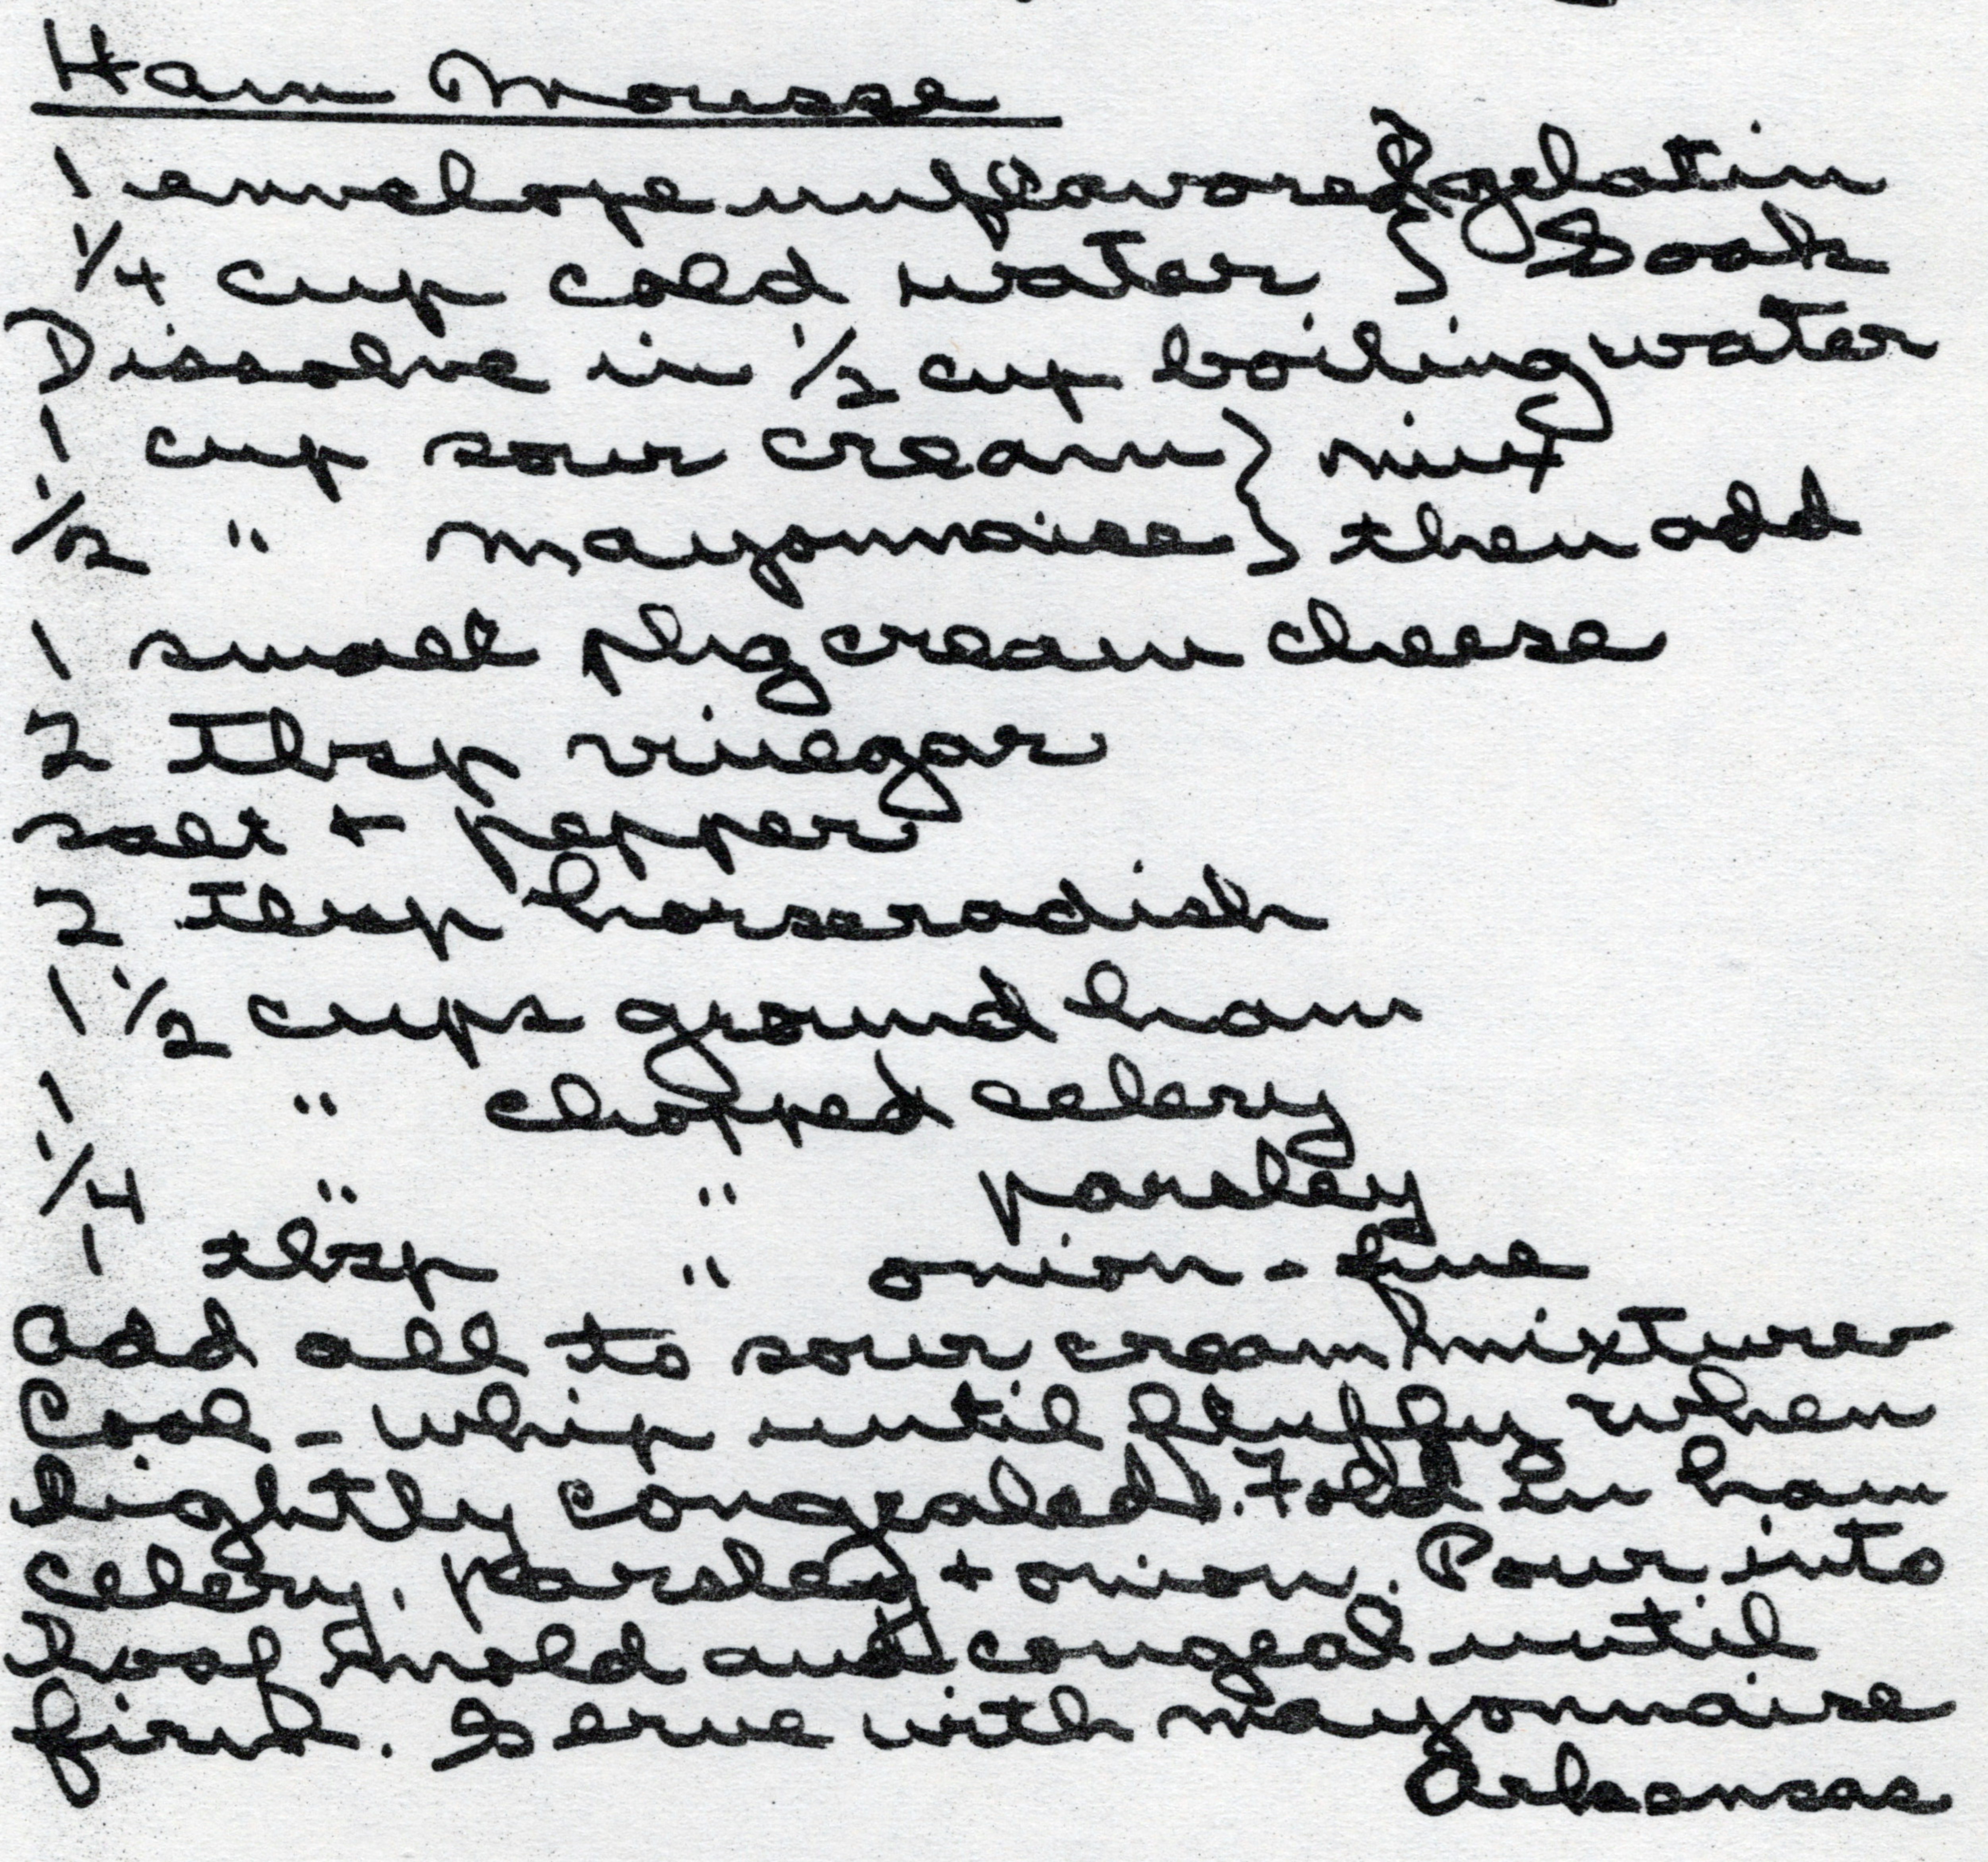 Ham Mousse
1 envelope unflavored } gelatin
1/4 cup cold water } Soak
Dissolve in 1/2 cup boiling water
1 cup sour cream } mix
1/2 " mayonnaise } then add
1 small pkg cream cheese
2 Tbsp vinegar
salt + pepper
2 Tbsp horseradish
1 1/2 cups ground ham
1 " chopped celery
1/4 " " parsley
1 tbsp " onion - fine
Add all to sour cream mixture
Cool - whip until fluffy when
lightly congealed. Fold in ham
celery, parsley + onion. Pour into
loaf mold and congeal until
firm. Serve with mayonnaise
Arkansas